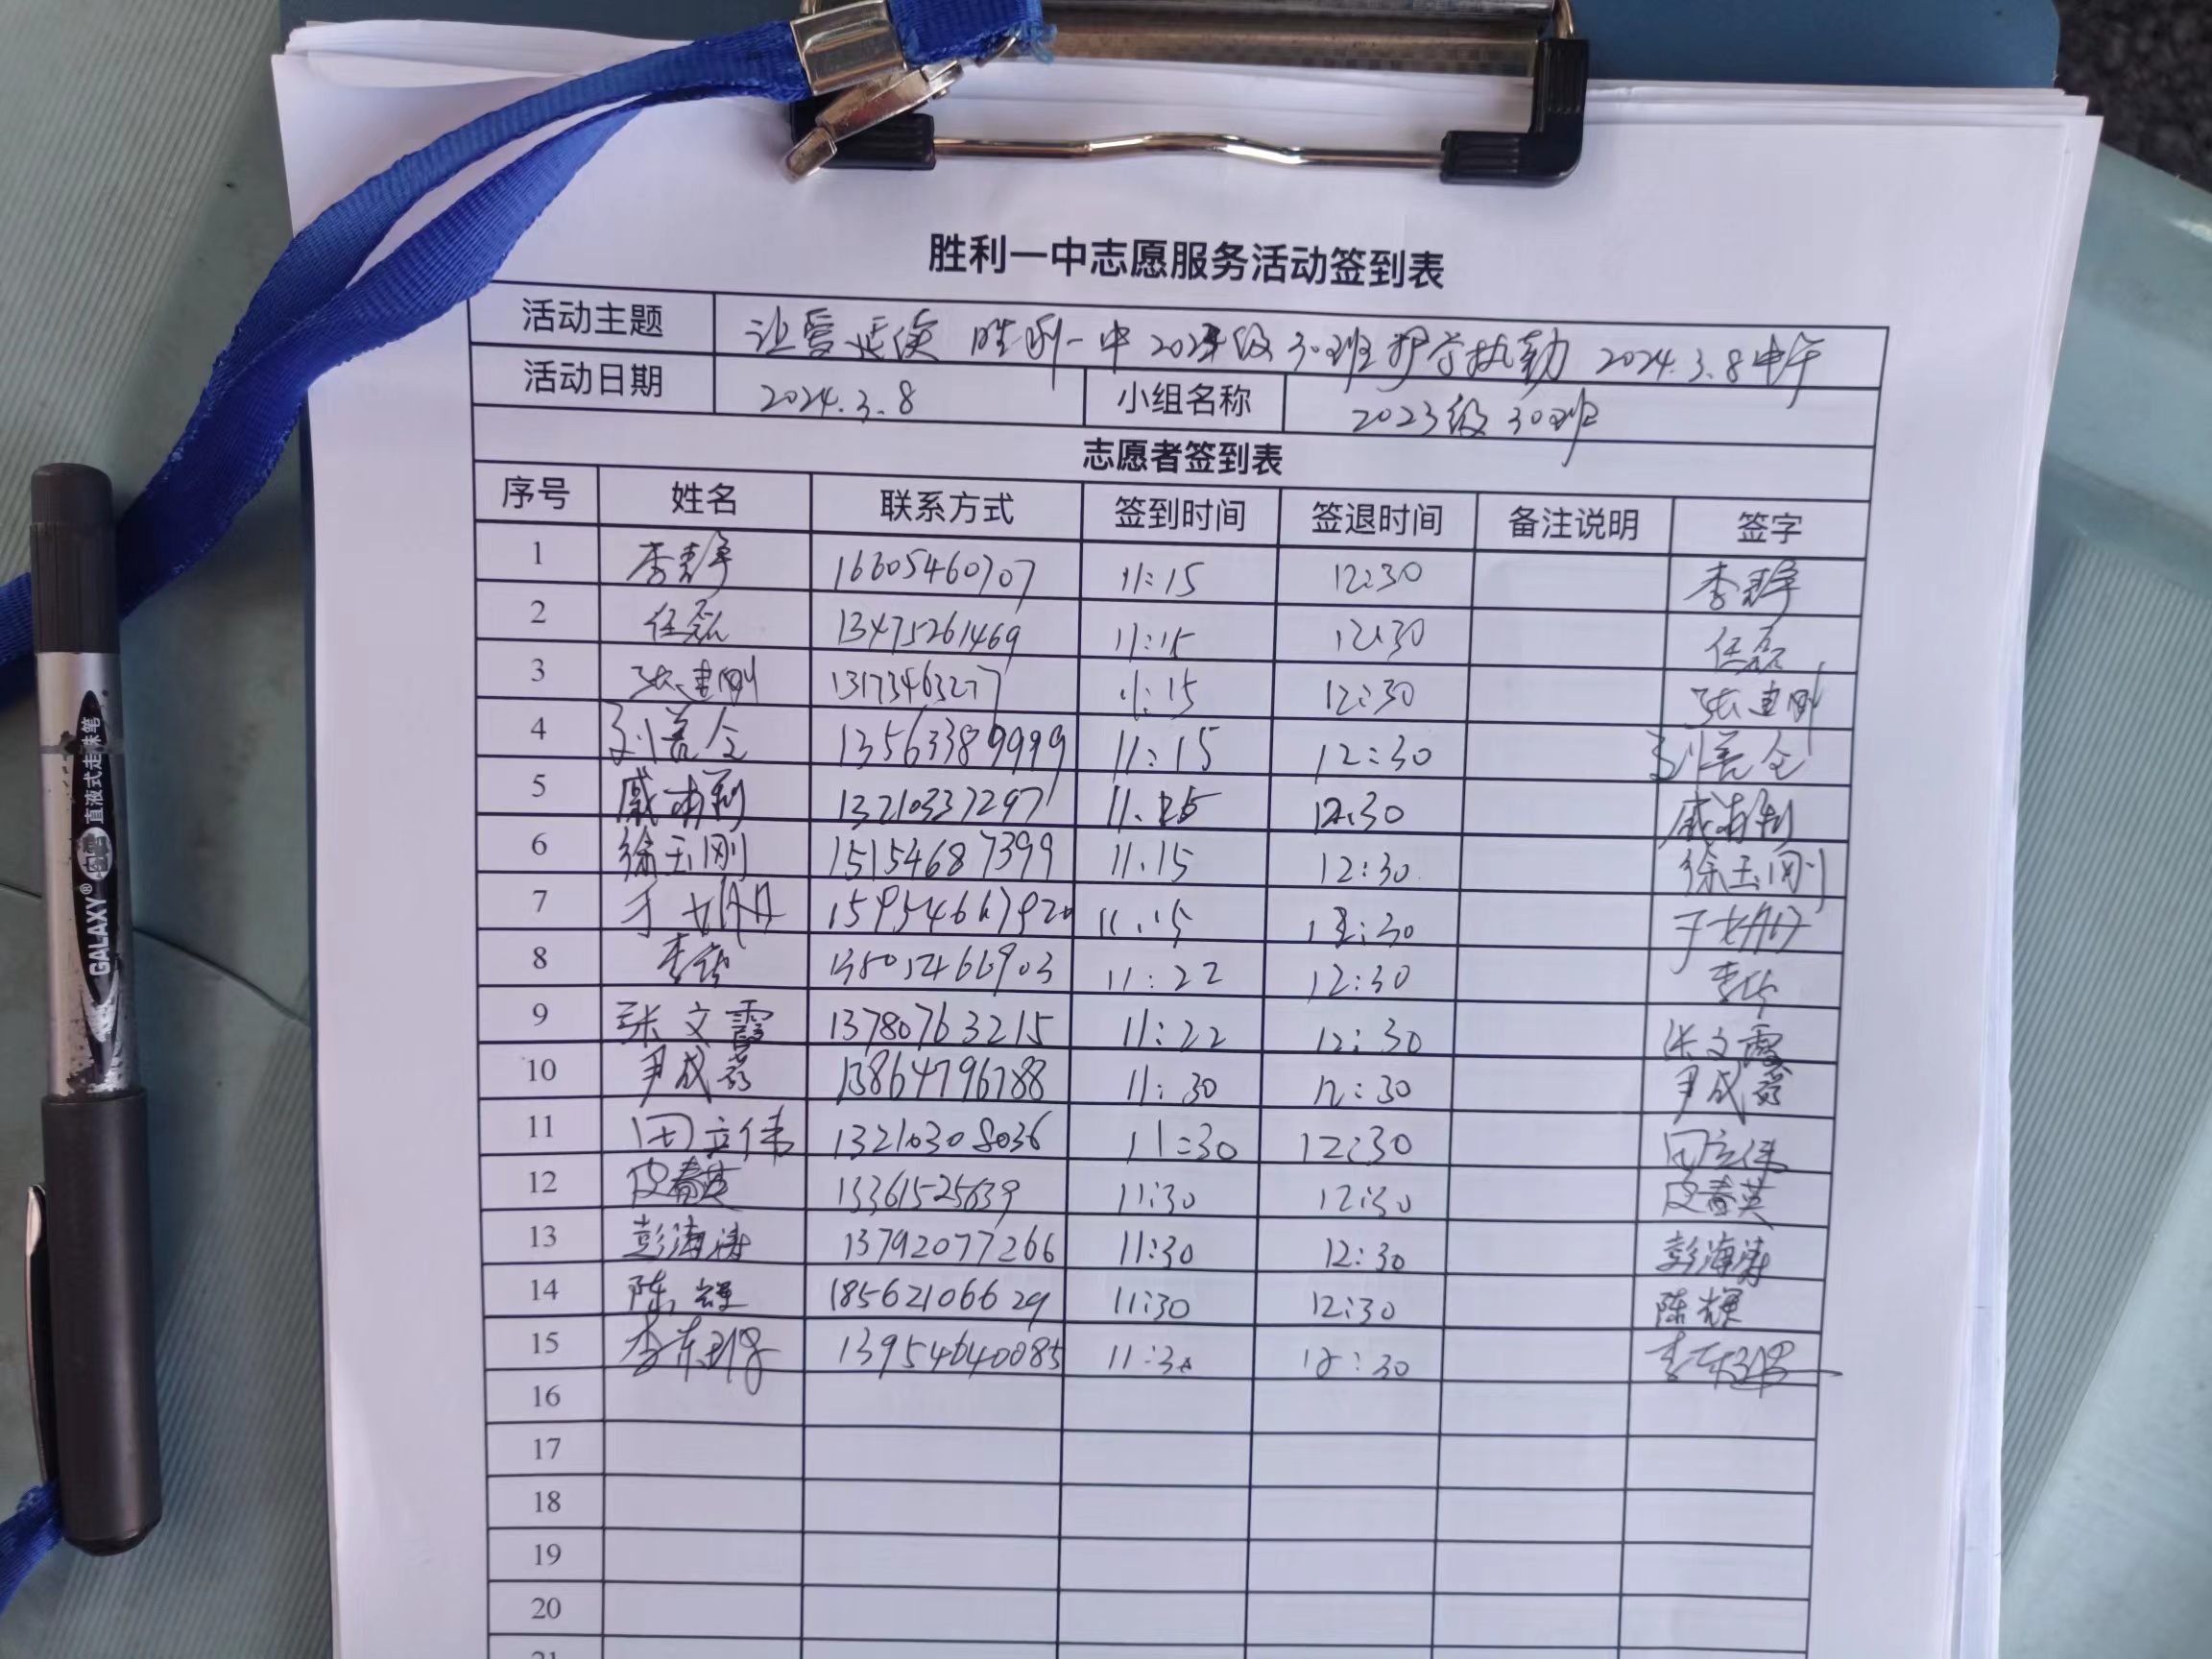 胜利一中志愿服务活动签到表
活动主题 让爱延续 胜利一中 2023级 30班护学执勤 2024.3.8中午
活动日期 2024.3.8 小组名称 2023级 30班
志愿者签到表
序号 姓名 联系方式 签到时间 签退时间 备注说明 签字
1 李 16605460707 11:15 12:30 李
2 任磊 13475261469 11:15 12:30 任磊
3 张建刚 13173463277 11:15 12:30 张建刚
4 刘善全 13563389999 11:15 12:30 刘善全
5 戚 13210337297 11.15 12.30 戚
6 徐玉刚 15154687399 11.15 12:30 徐玉刚
7 于 15954667920 11.15 12:30 于
8 李 11:22 12:30 李
9 张文霞 13780763215 11:22 12:30 张文霞
10 尹成 13864796788 11:30 12:30 尹成
11 田立伟 13210308036 11:30 12:30 田立伟
12 皮春英 13361525639 11:30 12:30 皮春英
13 彭海涛 13792077266 11:30 12:30 彭海涛
14 陈辉 18562106629 11:30 12:30 陈辉
15 李东 13954640085 11:30 12:30 李东
16
17
18
19
20
21
GALAXY® 直液式走珠笔